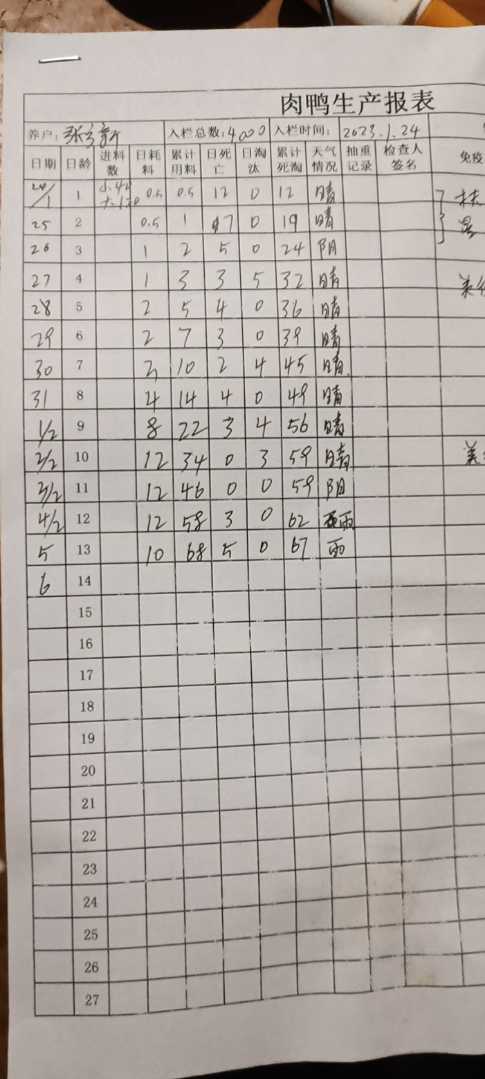 肉鸭生产报表
养户: 张 新 入栏总数: 4000 入栏时间: 2023.1.24
日期 日龄 进料数 日耗料 累计用料 日死亡 日淘汰 累计死淘 天气情况 抽重记录 检查人签名 免疫
24/1 1 0.5 0.5 12 0 12 晴
25 2 0.5 1 7 0 19 晴
26 3 1 2 5 0 24 阴
27 4 1 3 3 5 32 晴
28 5 2 5 4 0 36 晴
29 6 2 7 3 0 39 晴
30 7 3 10 2 4 45 晴
31 8 4 14 4 0 49 晴
1/2 9 8 22 3 4 56 晴
2/2 10 12 34 0 3 59 晴
3/2 11 12 46 0 0 59 阴
4/2 12 12 58 3 0 62 雨
5 13 10 68 5 0 67 雨
6 14
15
16
17
18
19
20
21
22
23
24
25
26
27